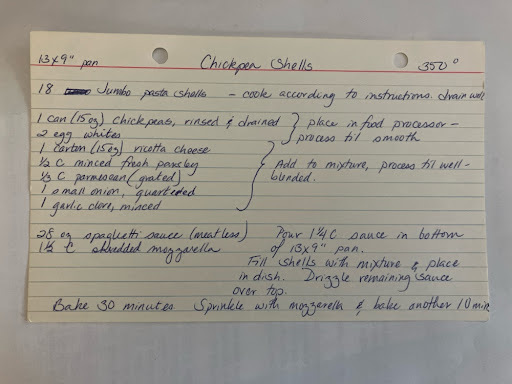 13x9" pan Chickpea Shells 350°
18 Jumbo pasta shells - cook according to instructions. drain well
1 can (15 oz) chickpeas, rinsed & drained } place in food processor -
2 egg whites process til smooth
1 carton (15 oz) ricotta cheese
1/2 C minced fresh parsley Add to mixture, process til well-
1/3 C parmesan (grated) blended.
1 small onion, quartered
1 garlic clove, minced
28 oz spaghetti sauce (meatless) Pour 1 1/4 C sauce in bottom
1 1/2 C shredded mozzarella of 13x9" pan.
Fill shells with mixture & place
in dish. Drizzle remaining sauce
over top.
Bake 30 minutes. Sprinkle with mozzarella & bake another 10 min